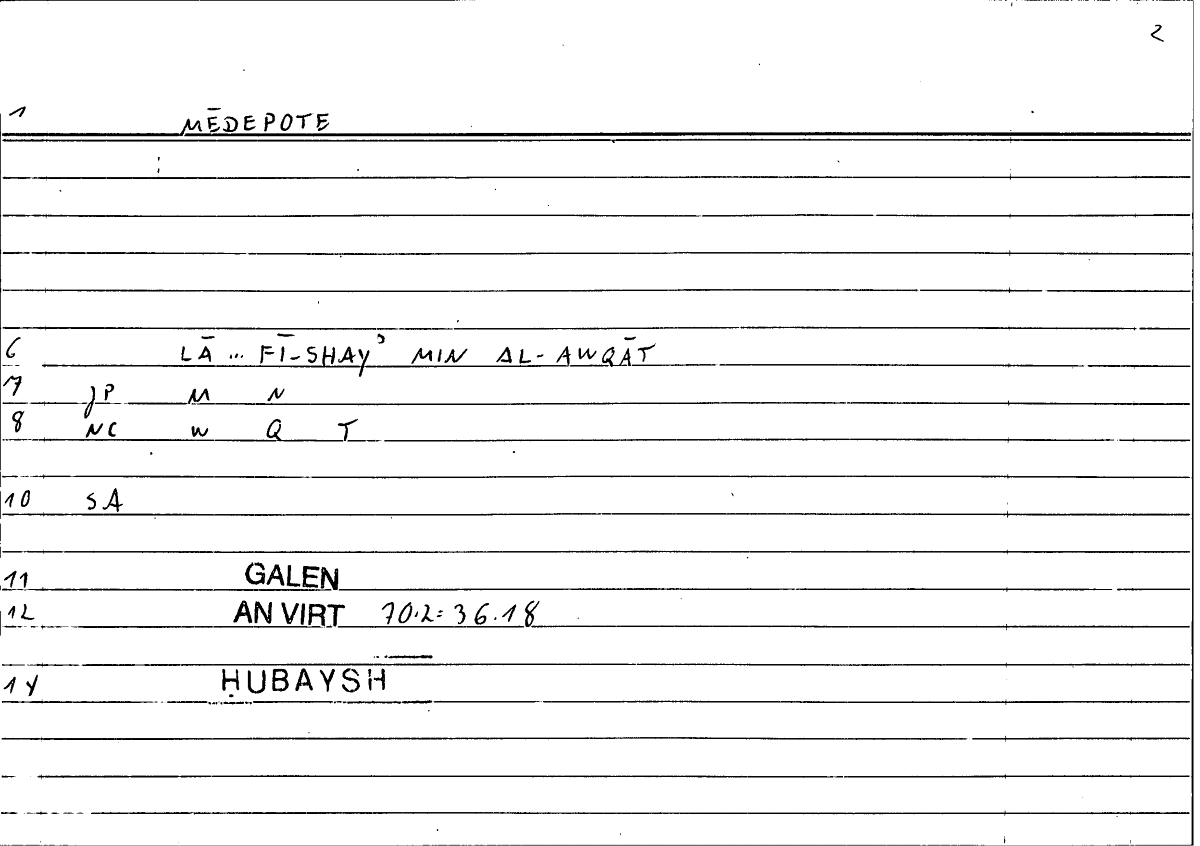 2
1 MĒDEPOTE
6 LĀ ... FĪ-SHAYʾ MIN AL-AWQĀT
7 JP M N
8 NC W Q T
10 SA
11 GALEN
12 AN VIRT 70.2:36.18
14 ḤUBAYSH